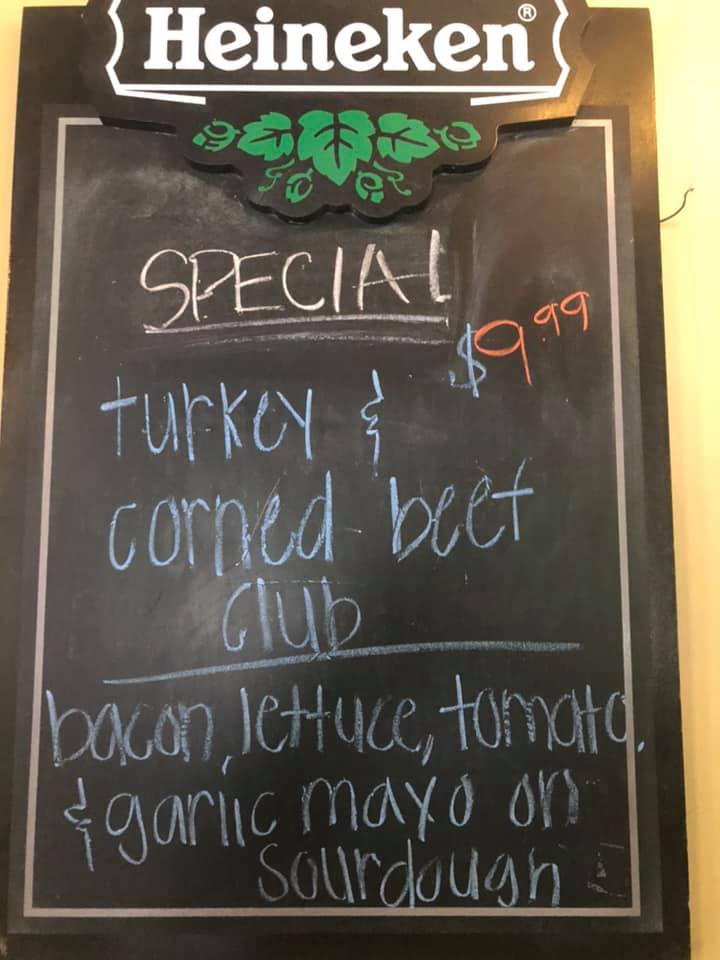 Heineken®
SPECIAL
$9.99
turkey &
corned beef
club
bacon, lettuce, tomato,
& garlic mayo on
sourdough